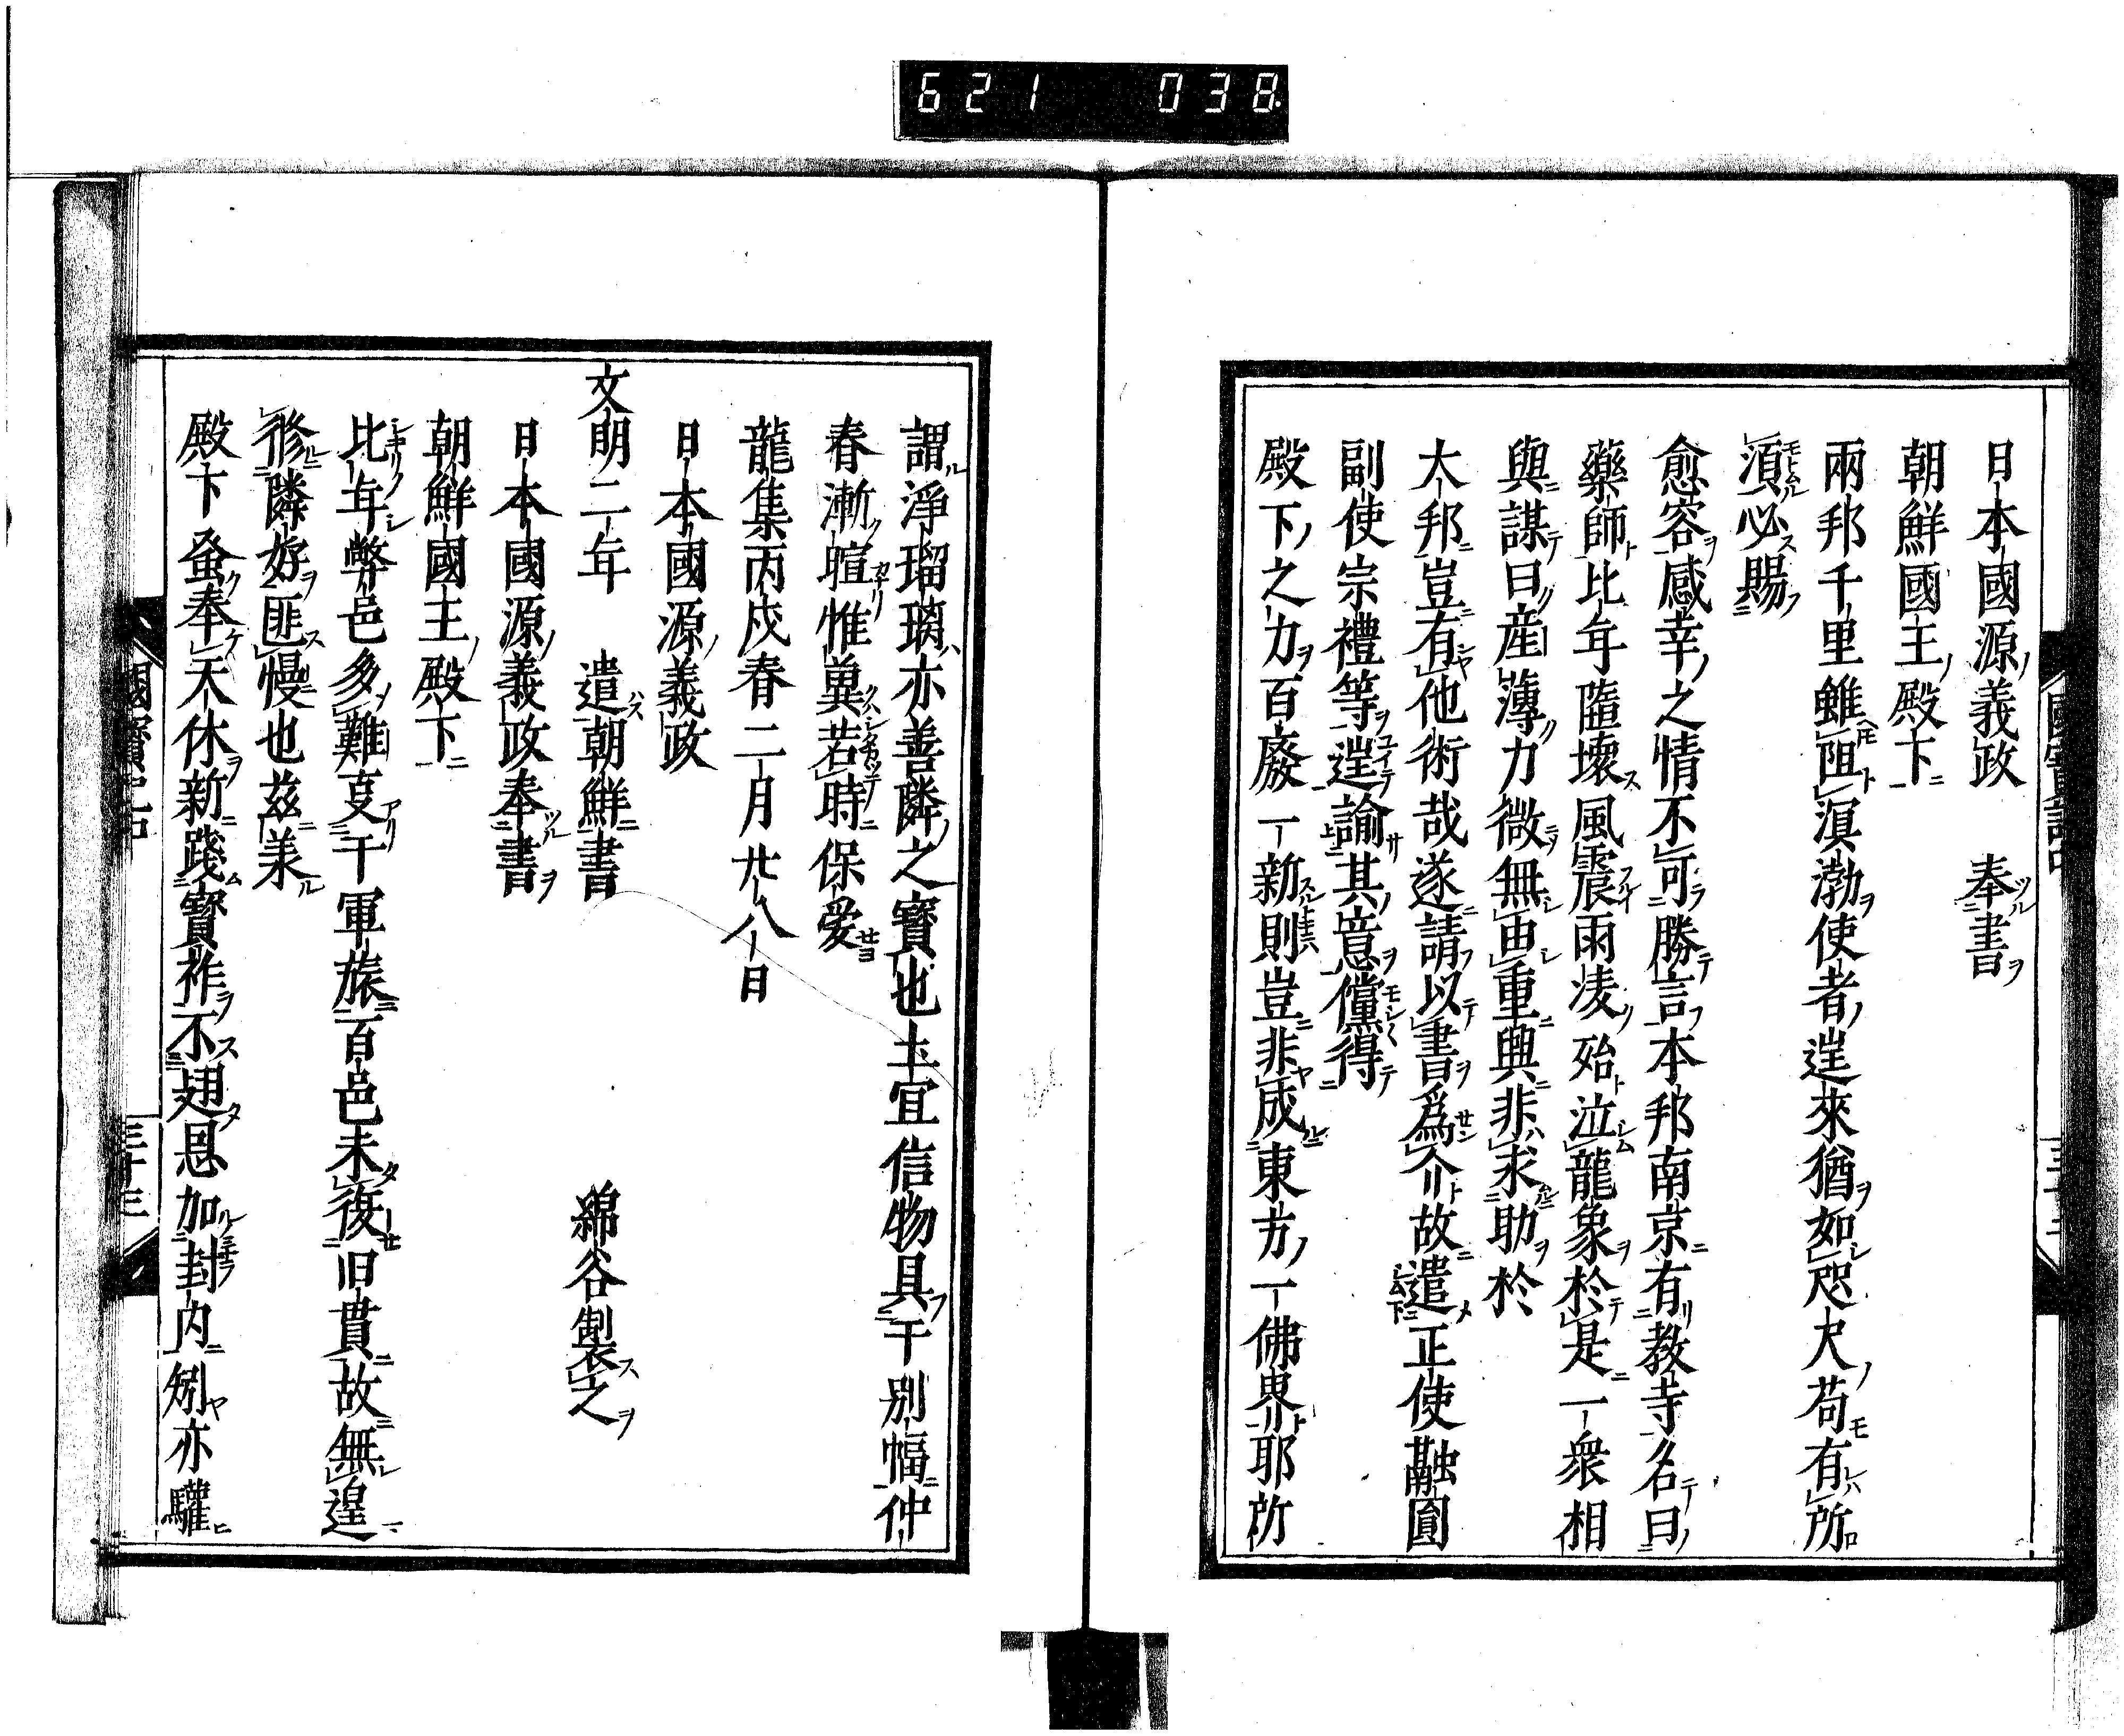 621 038
日本國源義政 奉書
朝鮮國王殿下
兩邦千里雖阻溟渤使者逞來猶如咫尺苟有所
須必賜
愈容感幸之情不可勝言本邦南京有教寺名曰
藥師比年隨壞風震雨凌殆泣龍象於是一衆相
與謀曰産薄力微無由重興非求助於
大邦豈有他術哉遂請以書爲介故遣正使融圓
副使宗禮等逞諭其意儻得
殿下之力百廢一新則豈非成東方一佛界耶所
謂淨瑠璃亦善隣之寶也土宜信物具干別幅仲
春漸暄惟冀若時保愛
龍集丙戌春二月廿八日
日本國源義政
文明二年 遣朝鮮書 綿谷製之
日本國源義政奉書
朝鮮國王殿下
比年弊邑多難叓干軍旅百邑未復旧貫故無遑
修隣好匪慢也茲羕
殿下蚤奉天休新踐寳祚不翅恩加封内矧亦驩